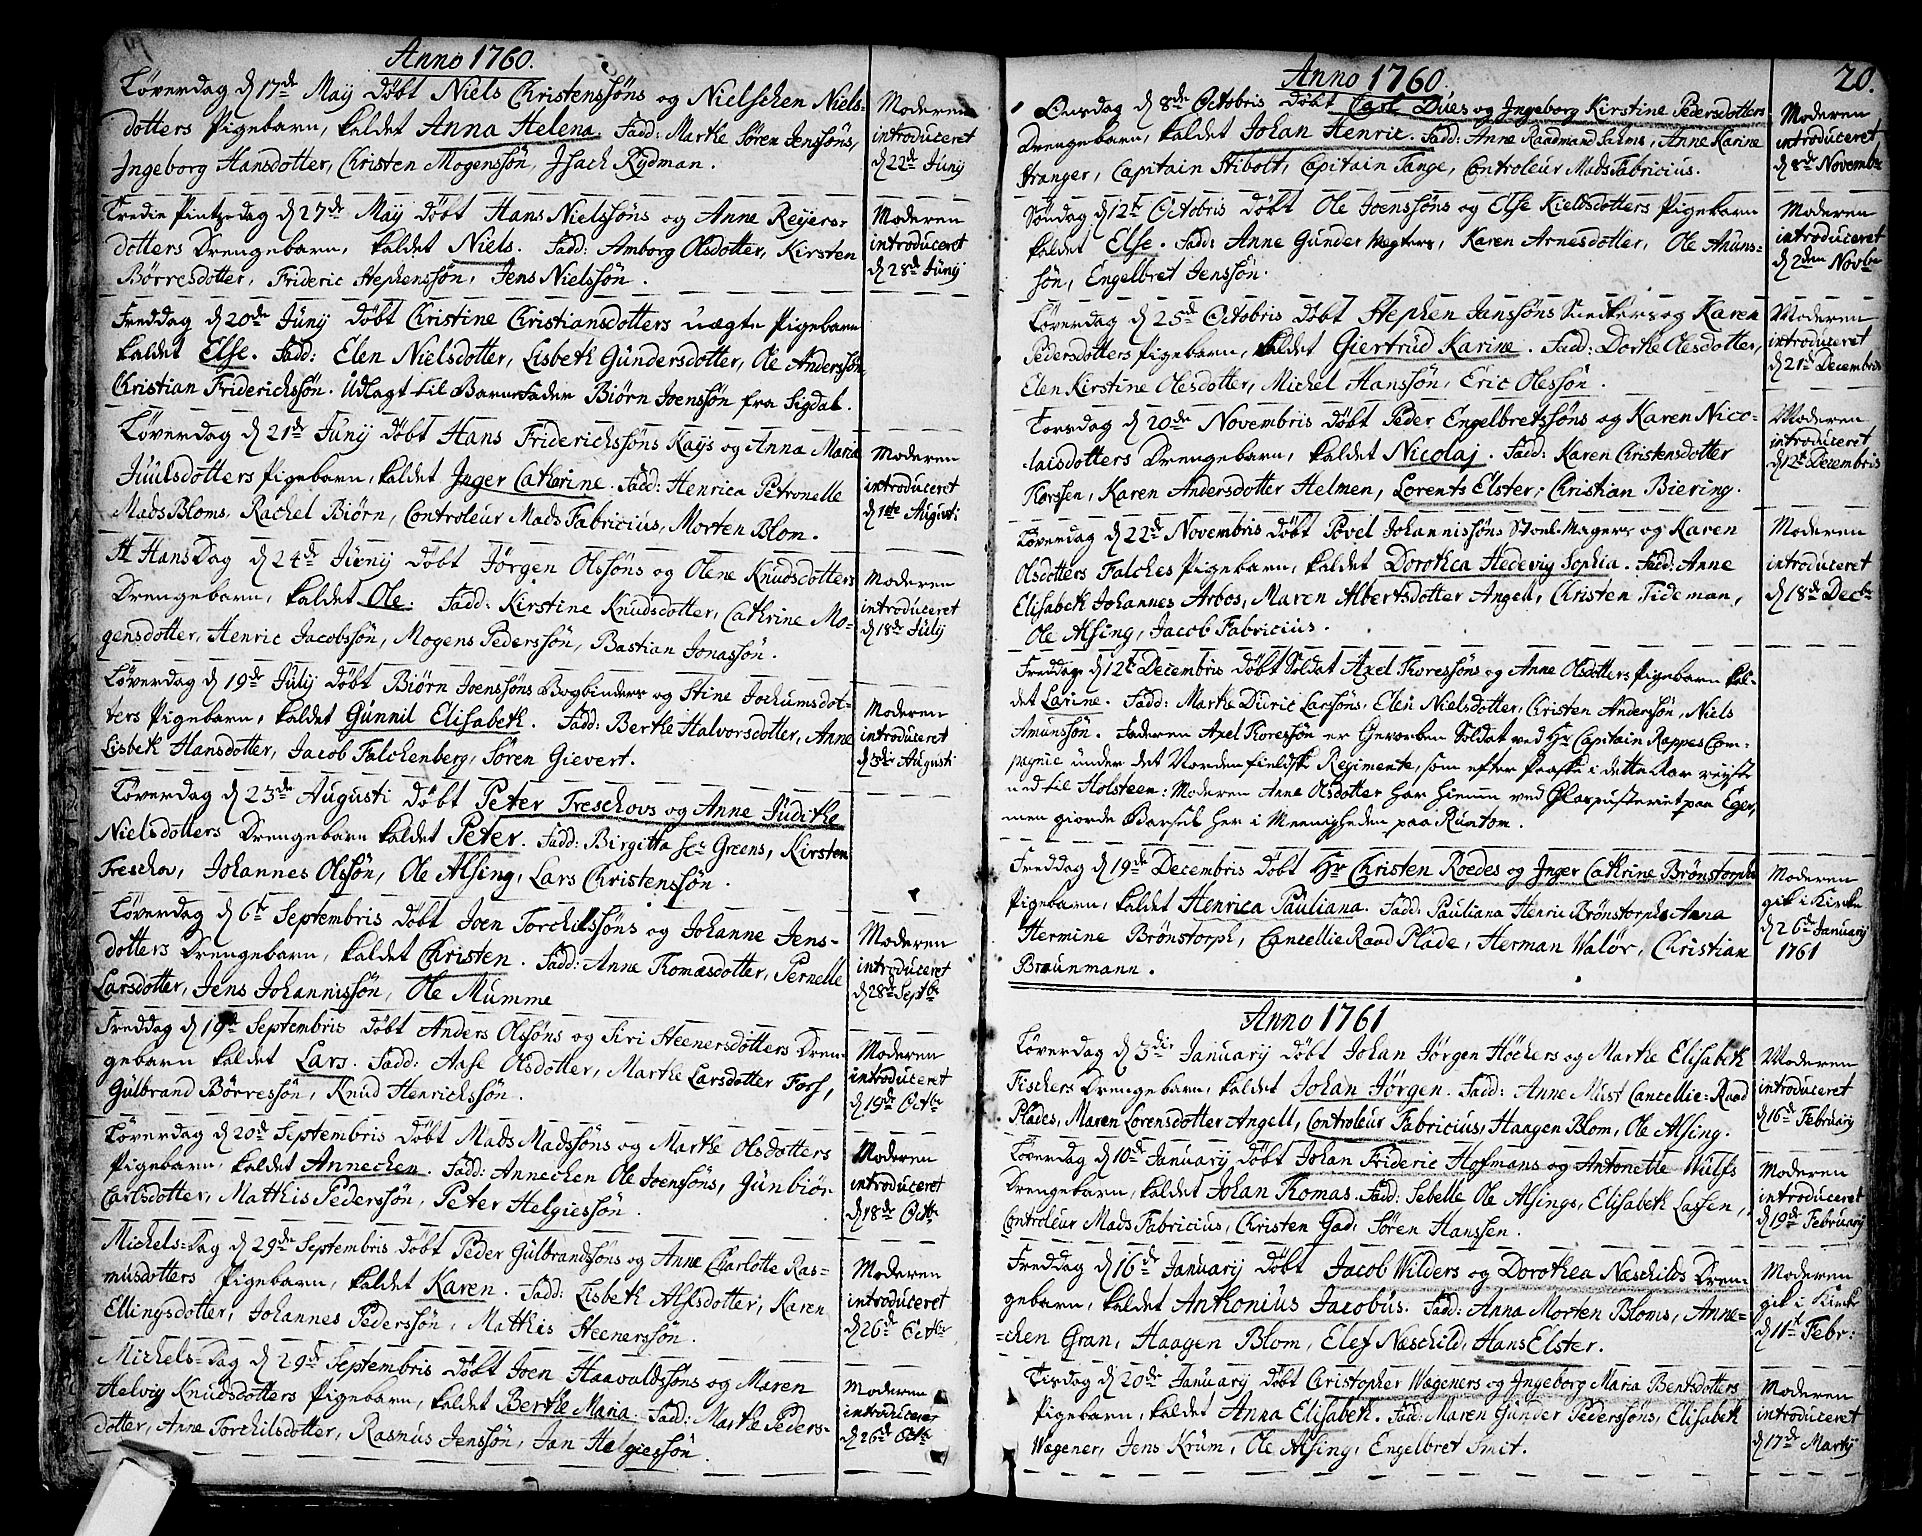 Anno 1760.
Løverdag d 17de Maÿ døbt Niels Christenssøns og Nielschen Niels-
dotters Pigebarn, kaldet Anna Helena. Fadd: Marthe Søren Jenssøns,
Ingeborg Hansdotter, Christen Mogenssøn, Isach Rydman.
Moderen
introduceret
d 22de Junÿ
Tredie Pintzedag d 27de Maÿ døbt Hans Nielssøns og Anne Reyers-
dotters Drengebarn, kaldet Niels. Fadd: Amborg Olsdotter, Kirsten
Børresdotter, Frideric Stephenssøn, Jens Nielssøn.
Moderen
introduceret
d 28de Junÿ
Freddag d 20de Junÿ døbt Christine Christiansdotters uægte Pigebarn
kaldet Else. Fadd: Elen Nielsdotter, Lisbeth Gundersdotter, Ole Anderssøn,
Christian Friderichssøn. Udlagt til Barnefader Biørn Joenssøn fra Sigdal.
Løverdag d 21de Junÿ døbt Hans Friderichssøns Kays og Anna Maria
Juulsdotters Pigebarn, kaldet Inger Cathrine. Fadd: Henrica Petronelle
Mads Bloms, Rachel Biørn, Controleur Mads Fabricius, Morten Blom.
Moderen
introduceret
d 1ste Augusti
St Hans Dag d 24de Junÿ døbt Jørgen Olssøns og Olene Knudsdotters
Drengebarn, kaldet Ole. Fadd: Kirstine Knudsdotter, Cathrine Mo-
gensdotter, Henric Jacobssøn, Mogens Pederssøn, Bastian Jonassøn.
Moderen
introduceret
d 18de Julÿ
Løverdag d 19de Julÿ døbt Biørn Joenssøns Bogbinders og Stine Jochumsdot-
ters Pigebarn, kaldet Gunnil Elisabeth. Fadd: Berthe Halvorsdotter, Anne
Lisbeth Hansdotter, Jacob Falchenberg, Søren Gievert.
Moderen
introduceret
d 5te Augusti
Løverdag d 23de Augusti døbt Peter Treschovs og Anne Judithe
Nielsdotters Drengebarn kaldet Peter. Fadd: Birgitta Sr Greens, Kirsten
Treschov, Johannes Olssøn, Ole Alsing, Lars Christenssøn.
Løverdag d 6te Septembris døbt Joen Torchilssøns og Johanne Jens-
dotters Drengebarn, kaldet Christen. Fadd: Anne Thomasdotter, Pernelle
Larsdotter, Jens Johannissøn, Ole Mumme
Moderen
introduceret
d 28de Septbr
Freddag d 19de Septembris døbt Anders Olssøns og Siri Steenersdotters Dren-
gebarn kaldet Lars. Fadd: Aase Olsdotter, Marthe Larsdotter Fors,
Gulbrand Børressøn, Knud Henrichssøn.
Moderen
introduceret
d 19de Octbr
Løverdag d 20de Septembris døbt Mads Madssøns og Marthe Olsdotters
Pigebarn, kaldet Annechen. Fadd: Annechen Ole Joenssøns, Gunbiør
Carlsdotter, Matthis Pederssøn, Peter Helgiessøn.
Moderen
introduceret
d 18de Octbr
Michels-Dag d 29de Septembris døbt Peder Gulbrandssøns og Anne Charlotte Ras-
musdotters Pigebarn, kaldet Karen. Fadd: Lisbeth Alfsdotter, Karen
Ellingsdotter, Johannes Pederssøn, Matthis Steenerssøn.
Moderen
introduceret
d 26de Octbr
Michels-Dag d 29de Septembris døbt Joen Haavaldssøns og Maren
Helvig Knudsdotters Pigebarn, kaldet Berthe Maria. Fadd: Marthe Peders-
dotter, Anne Torchilsdotter, Rasmus Jenssøn, Jan Helgiessøn.
Moderen
introduceret
d 26de Octb
Anno 1760.
20.
Onsdag d 8de Octobris døbt Carl Dues og Ingeborg Kirstine Pedersdotters
Drengebarn, kaldet Johan Henric. Fadd: Anne Raadmand Sahms, Anne Karine
Stranger, Capitain Stibolt, Capitain Tange, Controleur Mads Fabricius.
Moderen
introduceret
d 8de Novembr
Søndag d 12te Octobris døbt Ole Joenssøns og Else Kieldsdotters Pigebarn
kaldet Else. Fadd: Anne Gunder Vegters, Karen Arnesdotter, Ole Amuns-
søn, Engelbret Jenssøn.
Moderen
introduceret
d 2den Novbr
Løverdag d 25de Octobris døbt Stephen Janssøns Snedkers og Karen
Pedersdotters Pigebarn, kaldet Giertrud Karine. Fadd: Dorthe Olesdotter,
Elen Kirstine Olesdotter, Michel Hanssøn, Eric Olessøn.
Moderen
introduceret
d 21de Decembris
Torsdag d 20de Novembris døbt Peder Engelbretssøns og Karen Nico-
laisdotters Drengebarn, kaldet Nicolaj. Fadd: Karen Christensdotter
Thorsen, Karen Andersdotter Helmen, Lorents Elster, Christian Biering.
Moderen
introduceret
d 12te Decembris
Løverdag d 22de Novembris døbt Povel Johannissøns Stoel-Magers og Karen
Olsdotters Falches Pigebarn, kaldet Dorothea Hedevig Sophia. Fadd: Anne
Elisabeth Johannes Arbos, Maren Albertsdotter Angell, Christen Tideman,
Ole Alsing, Jacob Fabricius.
Moderen
introduceret
d 18de Decbr
Freddag d 12te Decembris døbt Soldat Axel Thoressøns og Anne Olsdotters Pigebarn kal-
det Larine. Fadd: Marthe Diiric Larssøns, Elen Nielsdotter, Christen Anderssøn, Niels
Amunssøn. Faderen Axel Thoressøn er Gevorben Soldat ved Hr Capitain Rappes Com-
pagnie under det Nordenfieldske Regimente, som efter Paaske i dette Aar reyste
ned til Holsteen: Moderen Anne Olsdotter har hiemme ved Glaspusteriet paa Eger,
men giorde Barsel her i Meenigheden paa Runtom.
Freddag d 19de Decembris døbt Hr Christen Roedes og Inger Cathrine Brønstorphs
Pigebarn, kaldet Henrica Pauliana. Fadd: Pauliana Henric Brønstorphs Anna
Hermine Brønstorph, Cancellie Raad Plade, Herman Valør, Christian
Braunmann.
Moderen
gik i Kirke
d 26de January
1761
Anno 1761
Løverdag d 3die January døbt Johan Jørgen Høckers og Marthe Elisabeth
Fischers Drengebarn, kaldet Johan Jørgen. Fadd: Anne Must Cancellie-Raad
Plades, Maren Lorensdotter Angell, Controleur Fabricius, Haagen Blom, Ole Alsing.
Moderen
introduceret
d 16de February
Løverdag d 10de January døbt Johan Frideric Hofmans og Antonette Wulfs
Drengebarn, kaldet Johan Thomas. Fadd: Sebelle Ole Alsings, Elisabeth Lassen,
Controleur Mads Fabricius, Christen Gad, Søren Hanssen.
Moderen
introduceret
d 19de February
Freddag d 16de January døbt Jacob Wilders og Dorothea Næschilds Dren-
gebarn, kaldet Anthonius Jacobus. Fadd: Anna Morten Bloms, Anne-
chen Gran, Haagen Blom, Elef Næschild, Hans Elster.
Moderen
gik i Kirke
d 11te Febr:
Tisdag d 20de January døbt Christopher Wageners og Ingeborg Maria Bentsdotters
Pigebarn, kaldet Anna Elisabeth. Fadd: Maren Gunder Pederssøns, Elisabeth
Wagener, Jens Krum, Ole Alsing, Engelbret Smit.
Moderen
introduceret
d 17de Martÿ